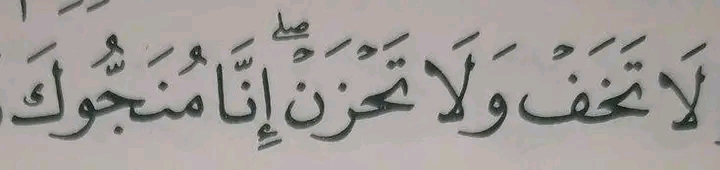 لَا تَخَفْ وَلَا تَحْزَنْ ۖ إِنَّا مُنَجُّوكَ